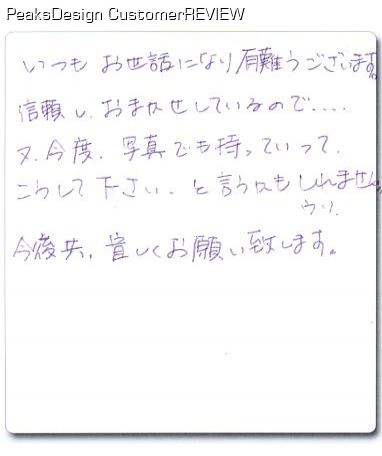 PeaksDesign CustomerREVIEW
いつも お世話になり有難うございます。
信頼し、おまかせしているので.....
又、今度、写真でも持っていって、
こうして下さい、と言うかもしれません。
今後共、宜しくお願い致します。